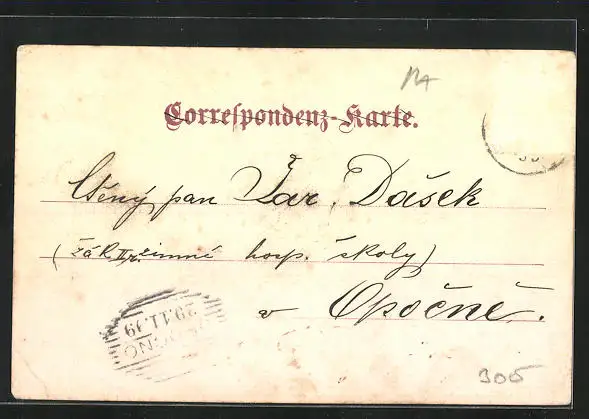 Correspondenz-Karte.
Ctěný pan Jar. Dašek
(žák II zimné hosp. školy)
v Opočně.
29.11.99
305